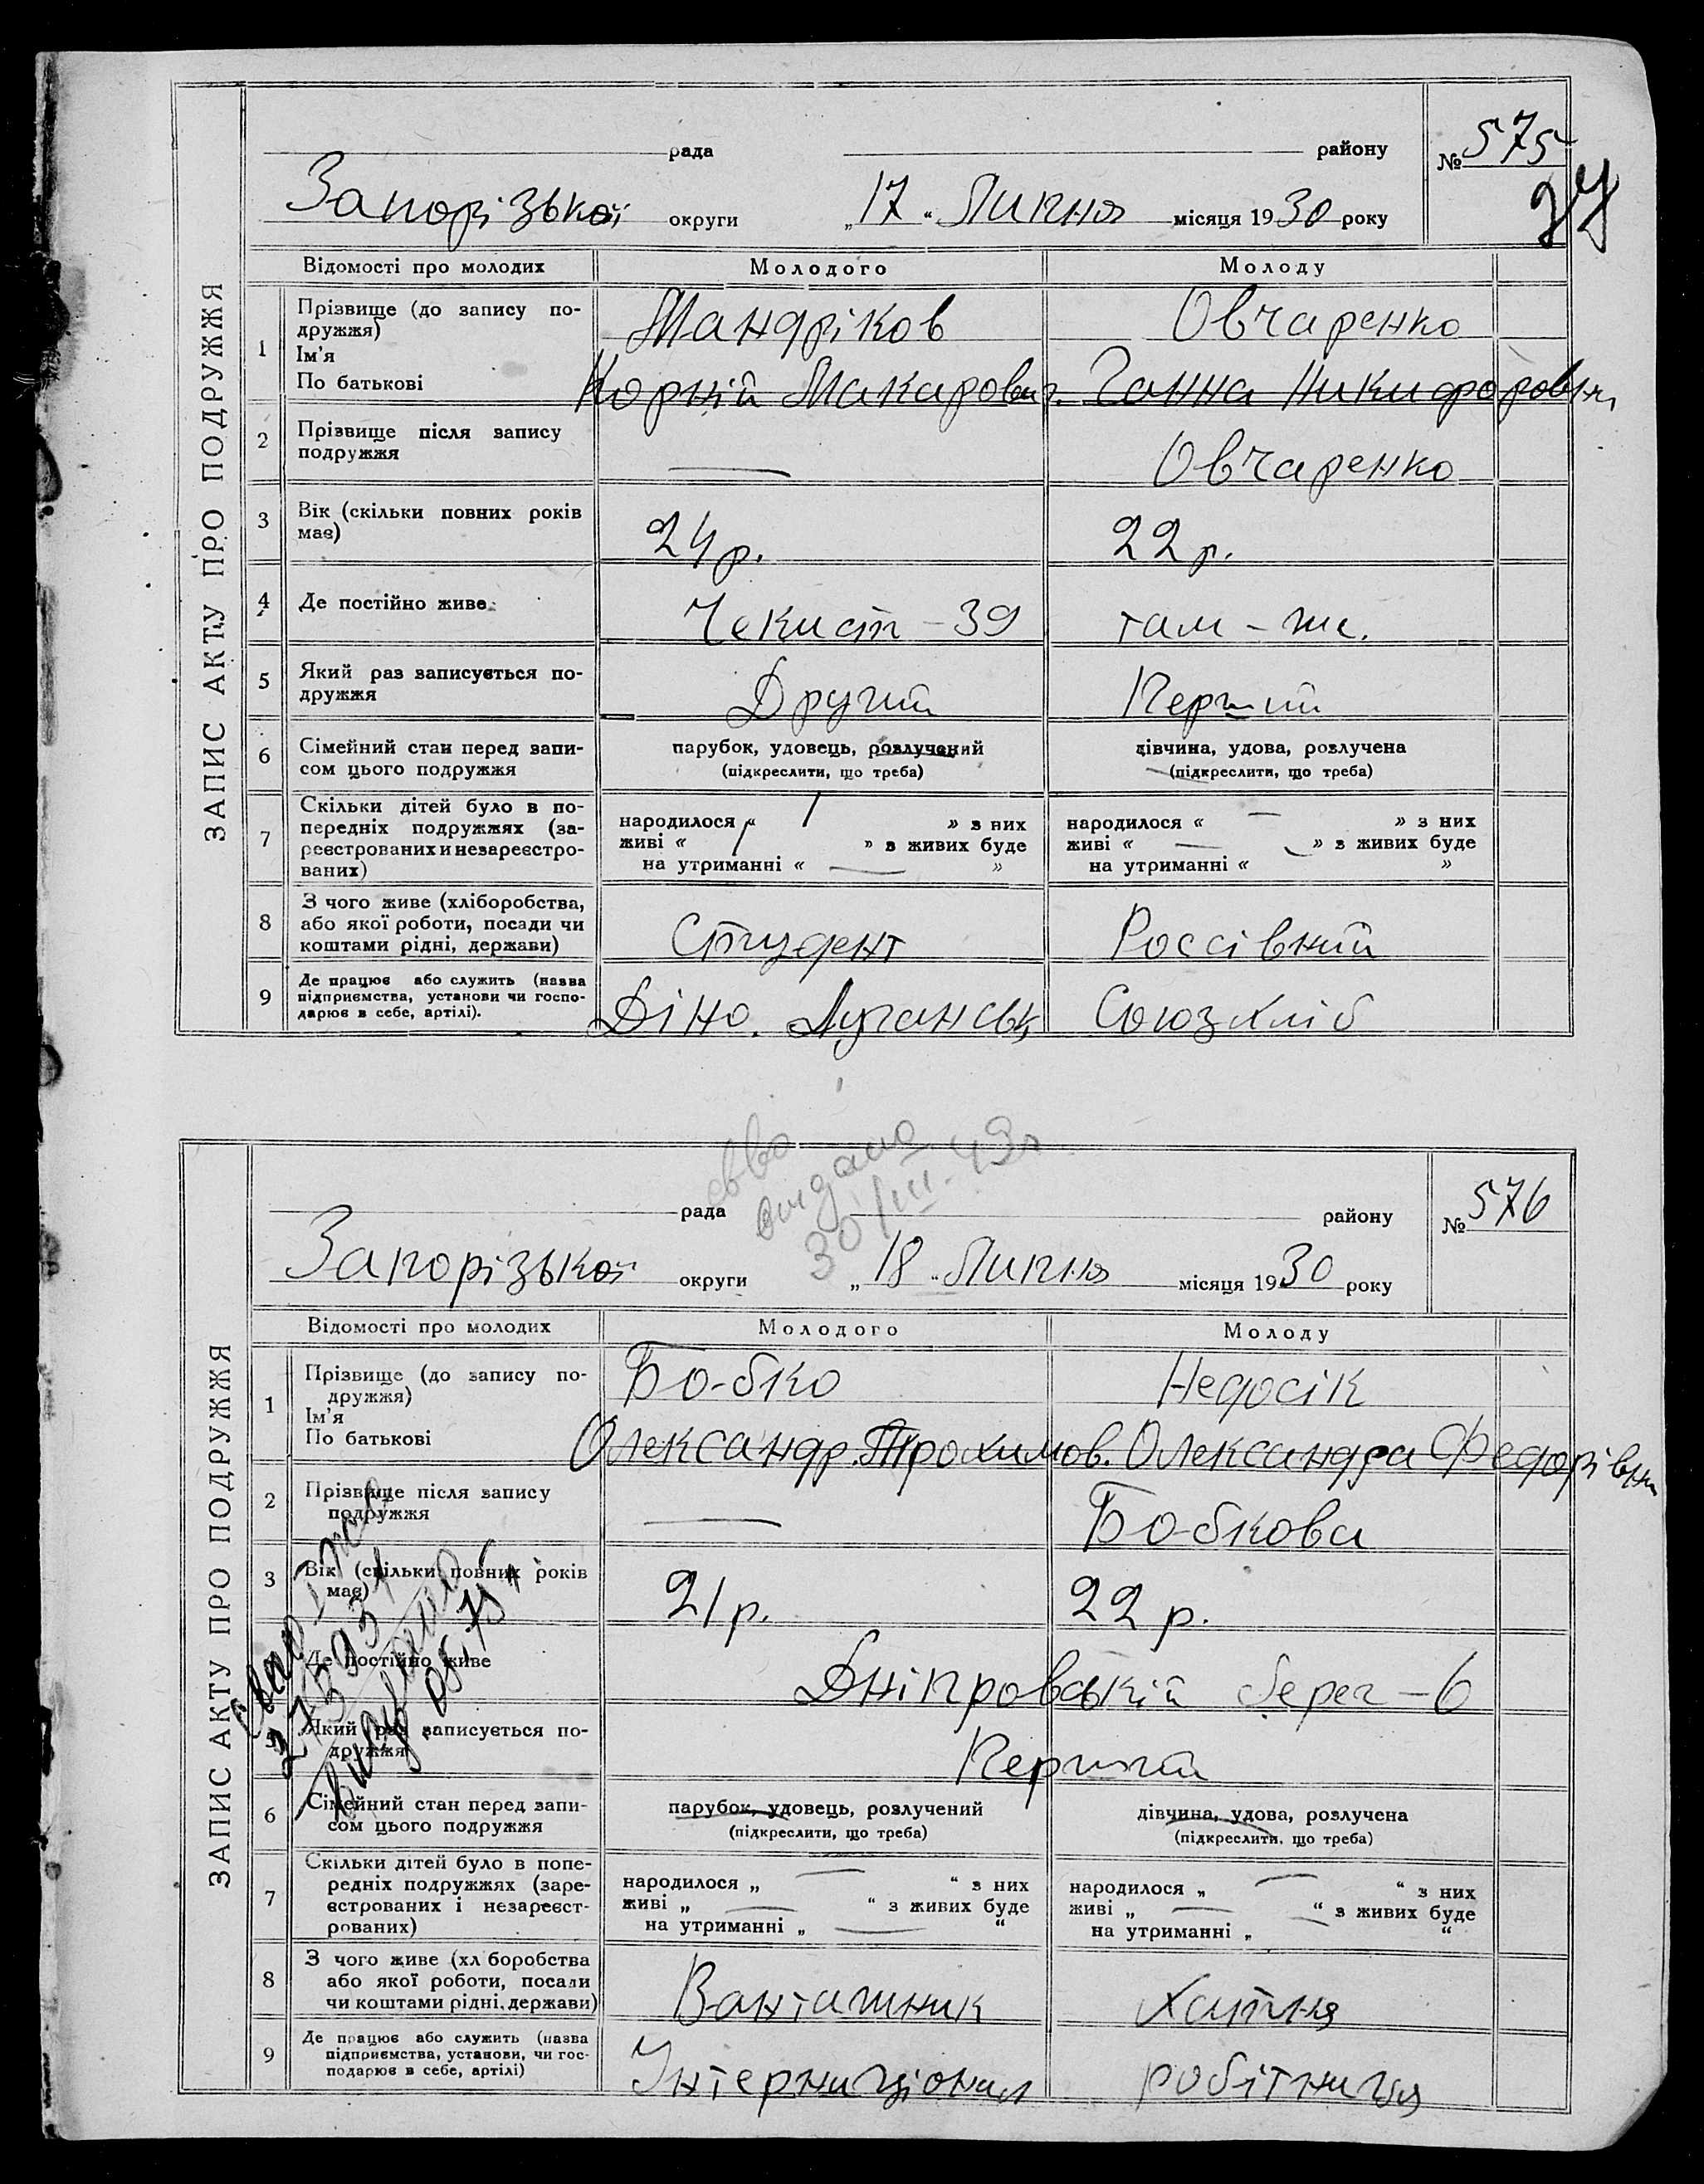 ЗАПИС АКТУ ПРО ПОДРУЖЖЯ
рада району № 575
27
Запорізької округи „17“ Липня місяця 1930 року
Відомості про молодих Молодого Молоду
1 Прізвище (до запису по-
дружжя) Мандріков Овчаренко
Ім'я
По батькові Корній Макарович. Ганна Никифоровн
2 Прізвище після запису
подружжя — Овчаренко
3 Вік (скільки повних років
має) 24 р. 22 р.
4 Де постійно живе Чекист – 39 там – же.
5 Який раз записується по-
дружжя Другий Перший
6 Сімейний стан перед запи-
сом цього подружжя
парубок, удовець, розлучений
(підкреслити, що треба)
дівчина, удова, розлучена
(підкреслити, що треба)
7 Скільки дітей було в по-
передніх подружжях (за-
реєстрованих и незареєстро-
ваних)
народилося « 1 » з них
живі « 1 » з живих буде
на утриманні « — »
народилося « — » з них
живі « — » з живих буде
на утриманні « »
8 З чого живе (хліборобства,
або якої роботи, посади чи
коштами рідні, держави) Студент
9 Де працює або служить (назва
підприємства, установи чи госпо-
дарює в себе, артілі). Діно. Луганськ Союзхліб
видано
30/III-43р
ЗАПИС АКТУ ПРО ПОДРУЖЖЯ
рада району № 576
Запорізької округи „18“ Липня місяця 1930 року
Відомості про молодих Молодого Молоду
1 Прізвище (до запису по-
дружжя) Бобко Недосік
Ім'я
По батькові Олександр. Трохимов. Олександра Федорівн
2 Прізвище після запису
подружжя — Бобкова
3 Вік (скільки повних років
має) 21 р. 22 р.
Де постійно живе Дніпровській берег – 6
5 Який раз записується по-
дружжя Перший
6 Сімейний стан перед запи-
сом цього подружжя
парубок, удовець, розлучений
(підкреслити, що треба)
дівчина, удова, розлучена
(підкреслити, що треба)
7 Скільки дітей було в попе-
редніх подружжях (заре-
єстрованих і незареєст-
рованих)
народилося „ — “ з них
живі „ — “ з живих буде
на утриманні „ — “
народилося „ — “ з них
живі „ — “ з живих буде
на утриманні „ “
8 З чого живе (хл боробства
або якої роботи, посади
чи коштами рідні, держави) Вантажник Хатня
9 Де працює або служить (назва
підприємства, установи, чи гос-
подарює в себе, артілі) Інтернаціонал робітниця